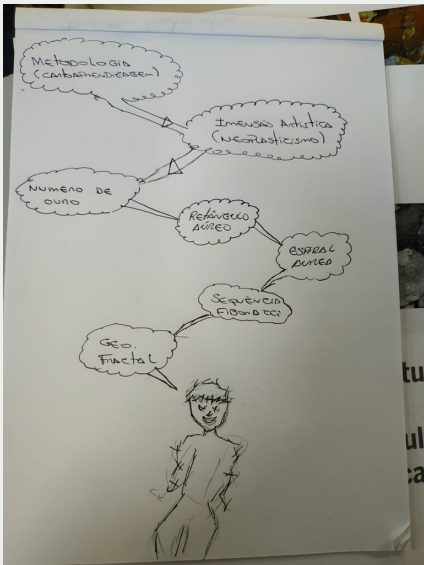 METODOLOGIA
(CAMBAPRENDIZAGEM)
IMENSÃO ARTISTICA
(NEOPLASTICISMO)
NUMERO DE
OURO
RETÂNGULO
ÁUREO
ESPIRAL
AUREA
SEQUÊNCIA
FIBONACCI
GEO.
FRACTAL
tu
ul
ca